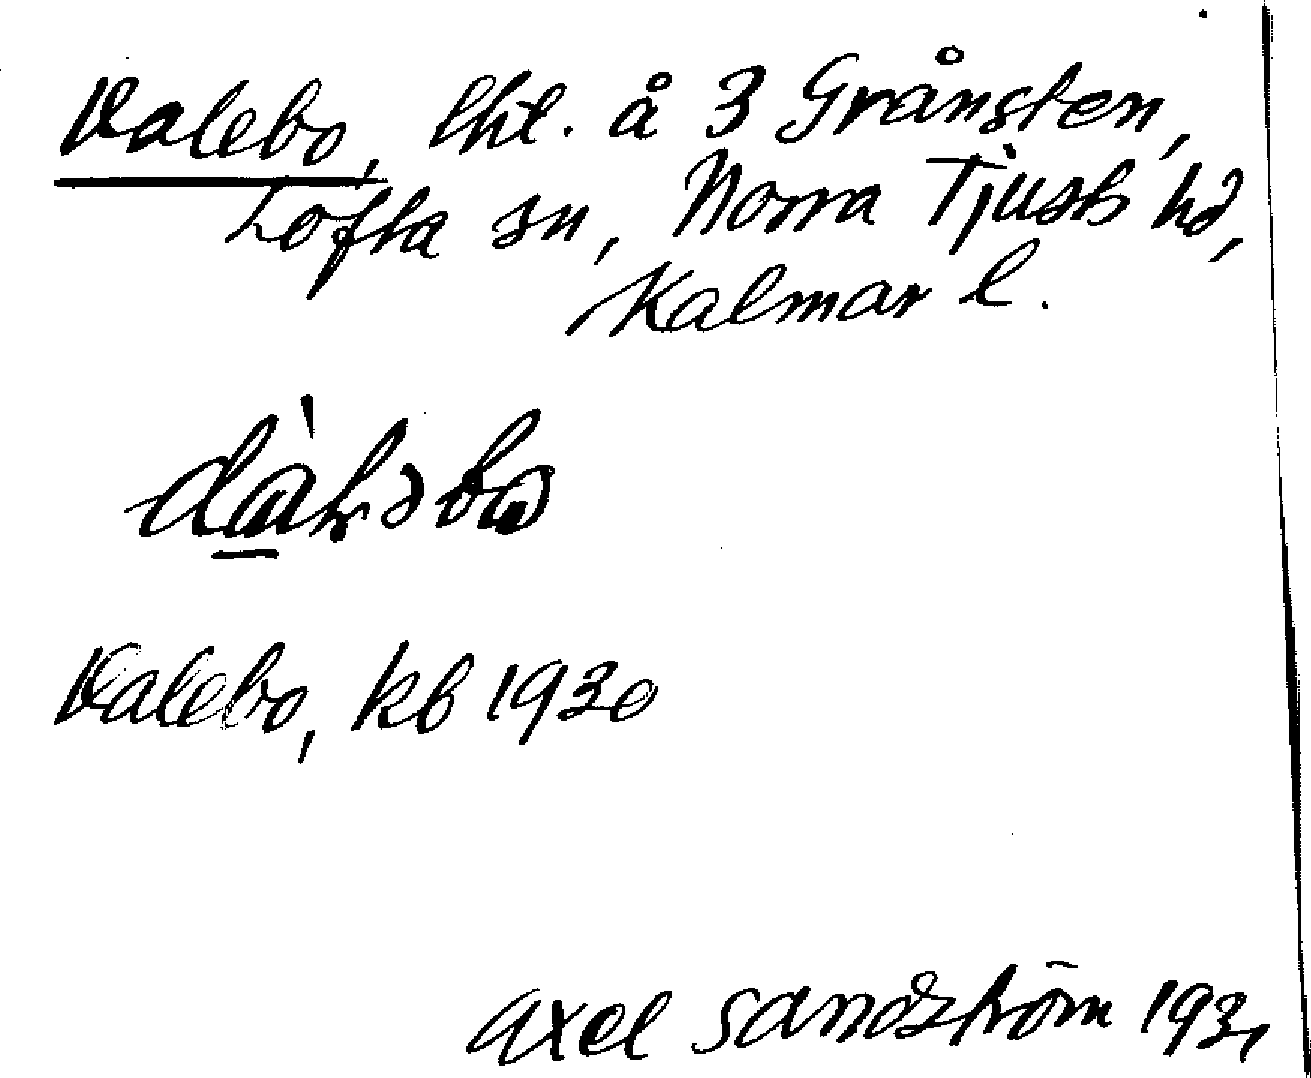 Dalebo, lht. å 3 Grånsten,
Lofta sn, Norra Tjusts hd,
Kalmar l.
Dalebo, kb 1930
Axel Sandström 1931